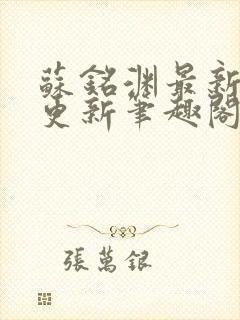 蘇銘淵最新
更新筆趣閣
張萬銀